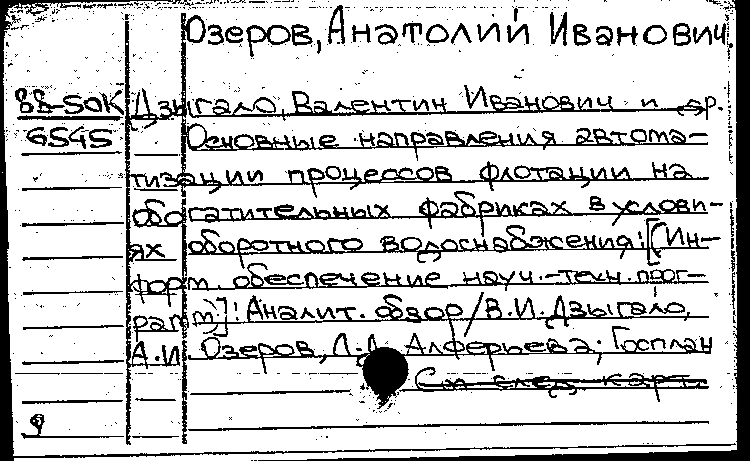 Озеров, Анатолий Иванович
88-SOK Дзыгало, Валентин Иванович и др.
6545 Основные направления автома-
тизации процессов флотации на
обогатительных фабриках в услови-
ях оборотного водоснабжения: [Ин-
форм. обеспечение науч.-техн. прог-
рамм]: Аналит. обзор / В.И. Дзыгало,
А.И. Озеров, Л.Д. Алферьева; Госплан
См. след. карт.
9